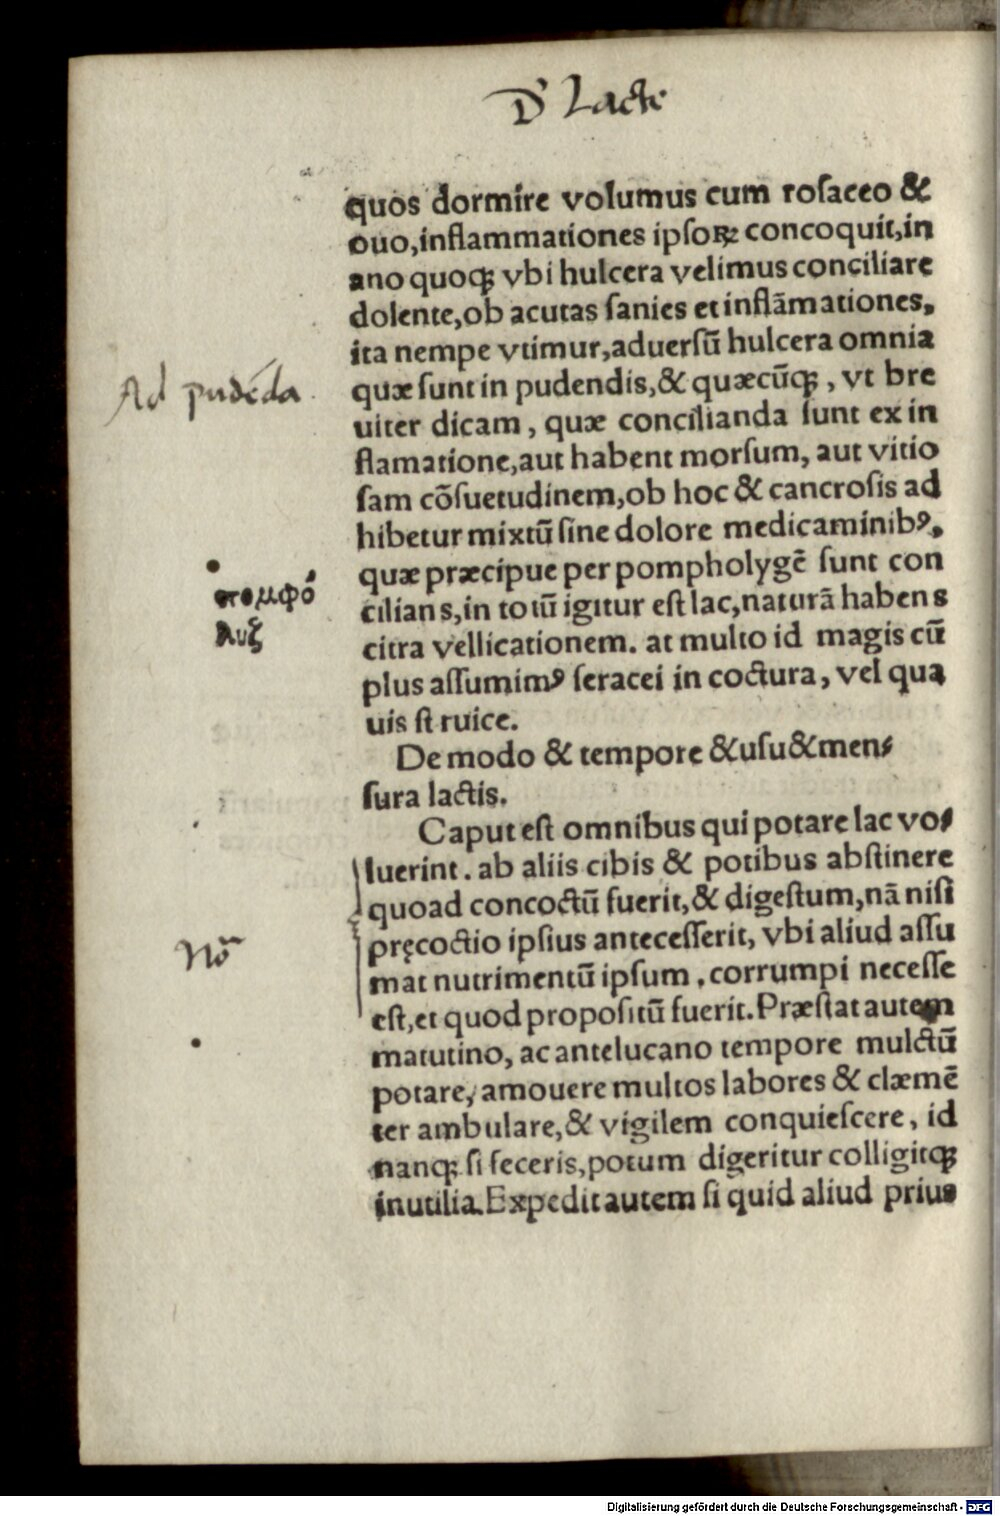 D̄ Lacte
quos dormire volumus cum roſaceo &
ouo,inflammationes ipſoꝝ concoquit,in
ano quoqꝫ vbi hulcera velimus conciliare
dolente,ob acutas ſanies et inflãmationes,
ita nempe vtimur,aduerſũ hulcera omnia
Ad pudẽda
quæ ſunt in pudendis,& quæcũqꝫ, vt bre
uiter dicam, quæ concilianda ſunt ex in
flamatione,aut habent morſum, aut vitio
ſam cõſuetudinem,ob hoc & cancroſis ad
hibetur mixtũ ſine dolore medicaminibꝰ,
quæ præcipue per pompholygẽ ſunt con
πομφό
cilians,in totũ igitur eſt lac,naturã habens
λυξ
citra vellicationem. at multo id magis cũ
plus aſſumimꝰ feracei in coctura, vel qua
uis ſtruice.
De modo & tempore &uſu&men-
ſura lactis.
Caput eſt omnibus qui potare lac vo-
luerint. ab aliis cibis & potibus abſtinere
quoad concoctũ fuerit,& digeſtum,nã niſi
Nõ
pręcoctio ipſius anteceſſerit, vbi aliud aſſu
mat nutrimentũ ipſum, corrumpi neceſſe
eſt,et quod propoſitũ fuerit.Præſtat autem
matutino, ac antelucano tempore mulctũ
potare, amouere multos labores & clæmẽ
ter ambulare,& vigilem conquieſcere, id
nanqꝫ ſi feceris,potum digeritur colligitqꝫ
inutilia.Expedit autem ſi quid aliud prius
Digitalisierung gefördert durch die Deutsche Forschungsgemeinschaft - DFG